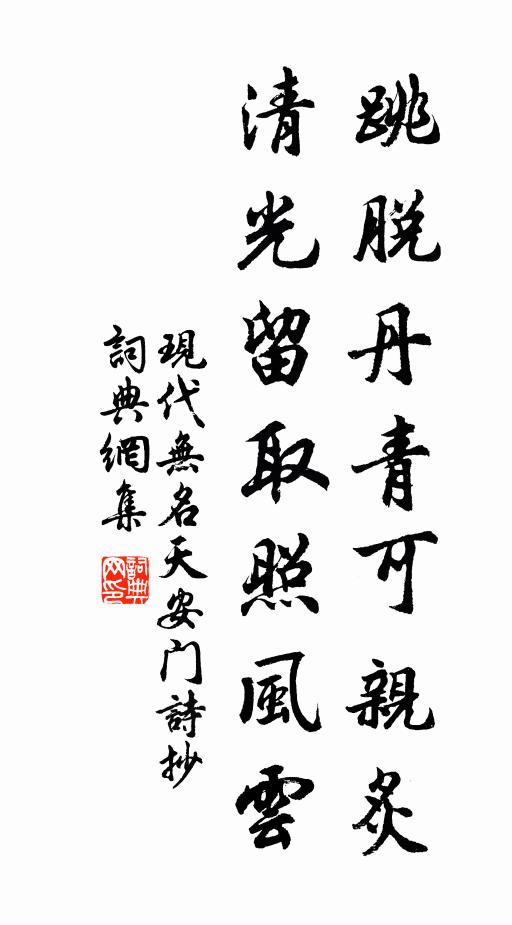 跳脫丹青可親炙
清光留取照風雲
現代無名天安门詩抄
詞典網集
詞典网印